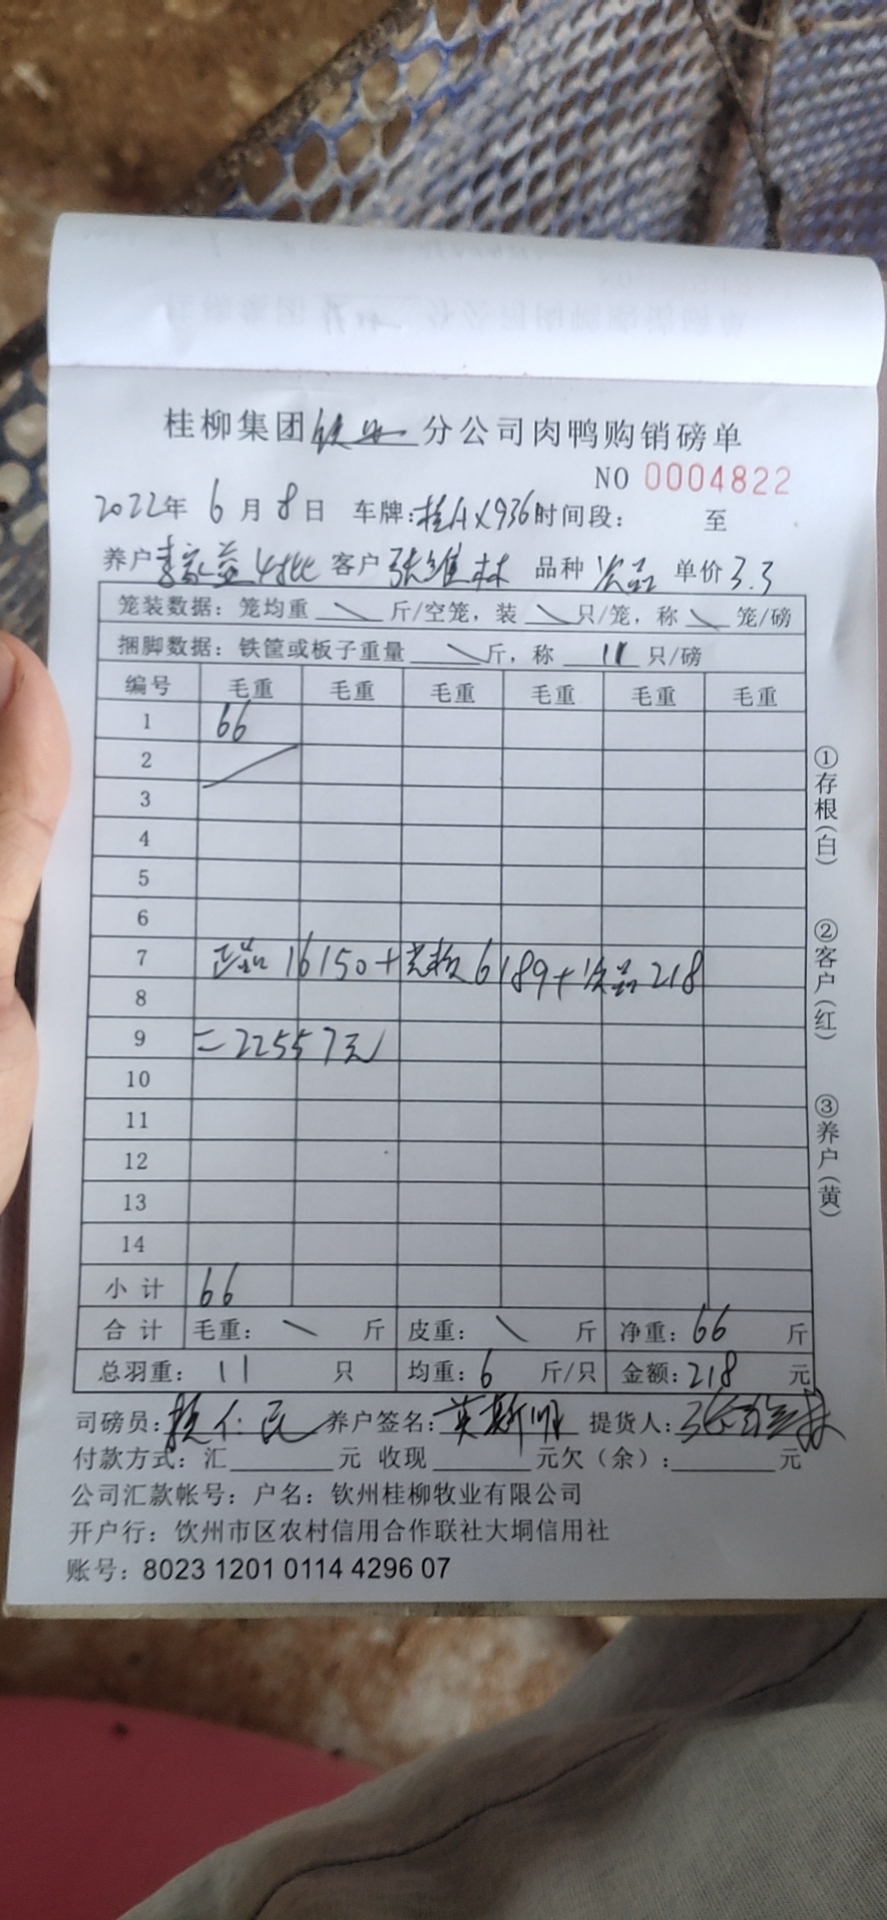 桂柳集团钦州分公司肉鸭购销磅单
NO 0004822
2022年 6月8日 车牌:桂AX936 时间段: 至
养户 李家益 4批 客户 张维林 品种 次品 单价 3.3
笼装数据: 笼均重 \ 斤/空笼, 装 \ 只/笼, 称 \ 笼/磅
捆脚数据: 铁筐或板子重量 \ 斤, 称 11 只/磅
编号 毛重 毛重 毛重 毛重 毛重 毛重
1 66
2
3
4
5
6
7 正品 16150+ 6189+次品 218
8
9 =22557元
10
11
12
13
14
小计 66
合计 毛重: \ 斤 皮重: \ 斤 净重: 66 斤
总羽重: 11 只 均重: 6 斤/只 金额: 218 元
司磅员: 仁民 养户签名: 黄斯 提货人: 张维林
付款方式: 汇 元 收现 元欠(余): 元
公司汇款帐号: 户名: 钦州桂柳牧业有限公司
开户行: 饮州市区农村信用合作联社大垌信用社
账号: 8023 1201 0114 4296 07
①存根(白)
②客户(红)
③养户(黄)